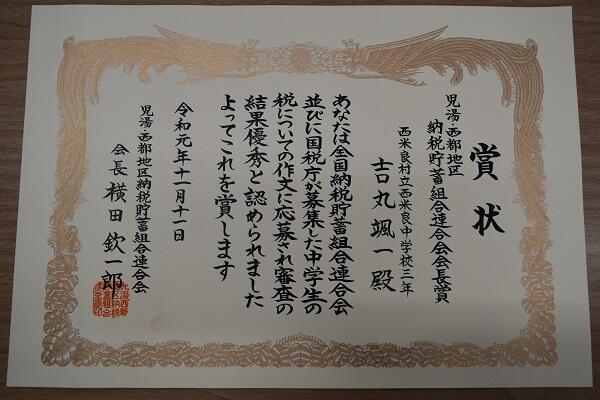 賞状
児湯・西都地区
納税貯蓄組合連合会会長賞
西米良村立西米良中学校三年
吉丸颯一殿
あなたは全国納税貯蓄組合連合会
並びに国税庁が募集した中学生の
税についての作文に応募され審査の
結果優秀と認められました
よってこれを賞します
令和元年十一月十一日
児湯・西都地区納税貯蓄組合連合会
会長横田欽一郎